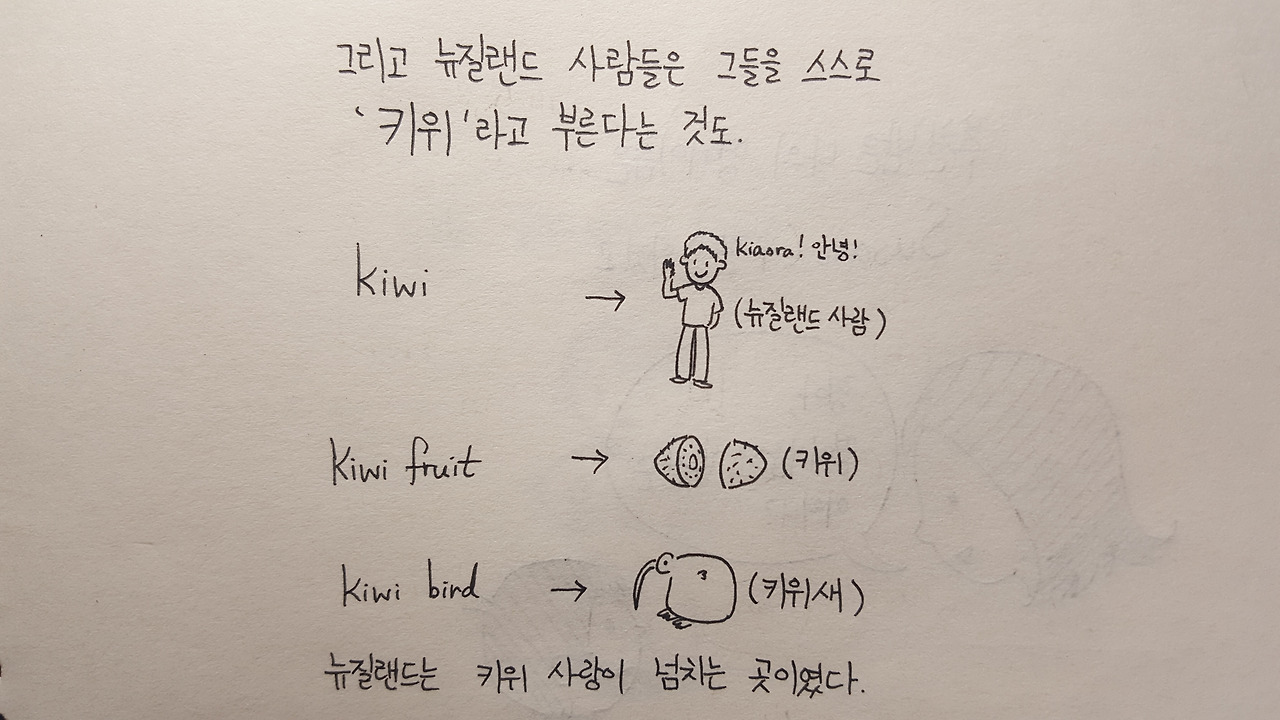 그리고 뉴질랜드 사람들은 그들을 스스로
'키위'라고 부른다는 것도.
kiwi → kiaora! 안녕!
(뉴질랜드 사람)
kiwi fruit → (키위)
kiwi bird → (키위새)
뉴질랜드는 키위 사랑이 넘치는 곳이였다.